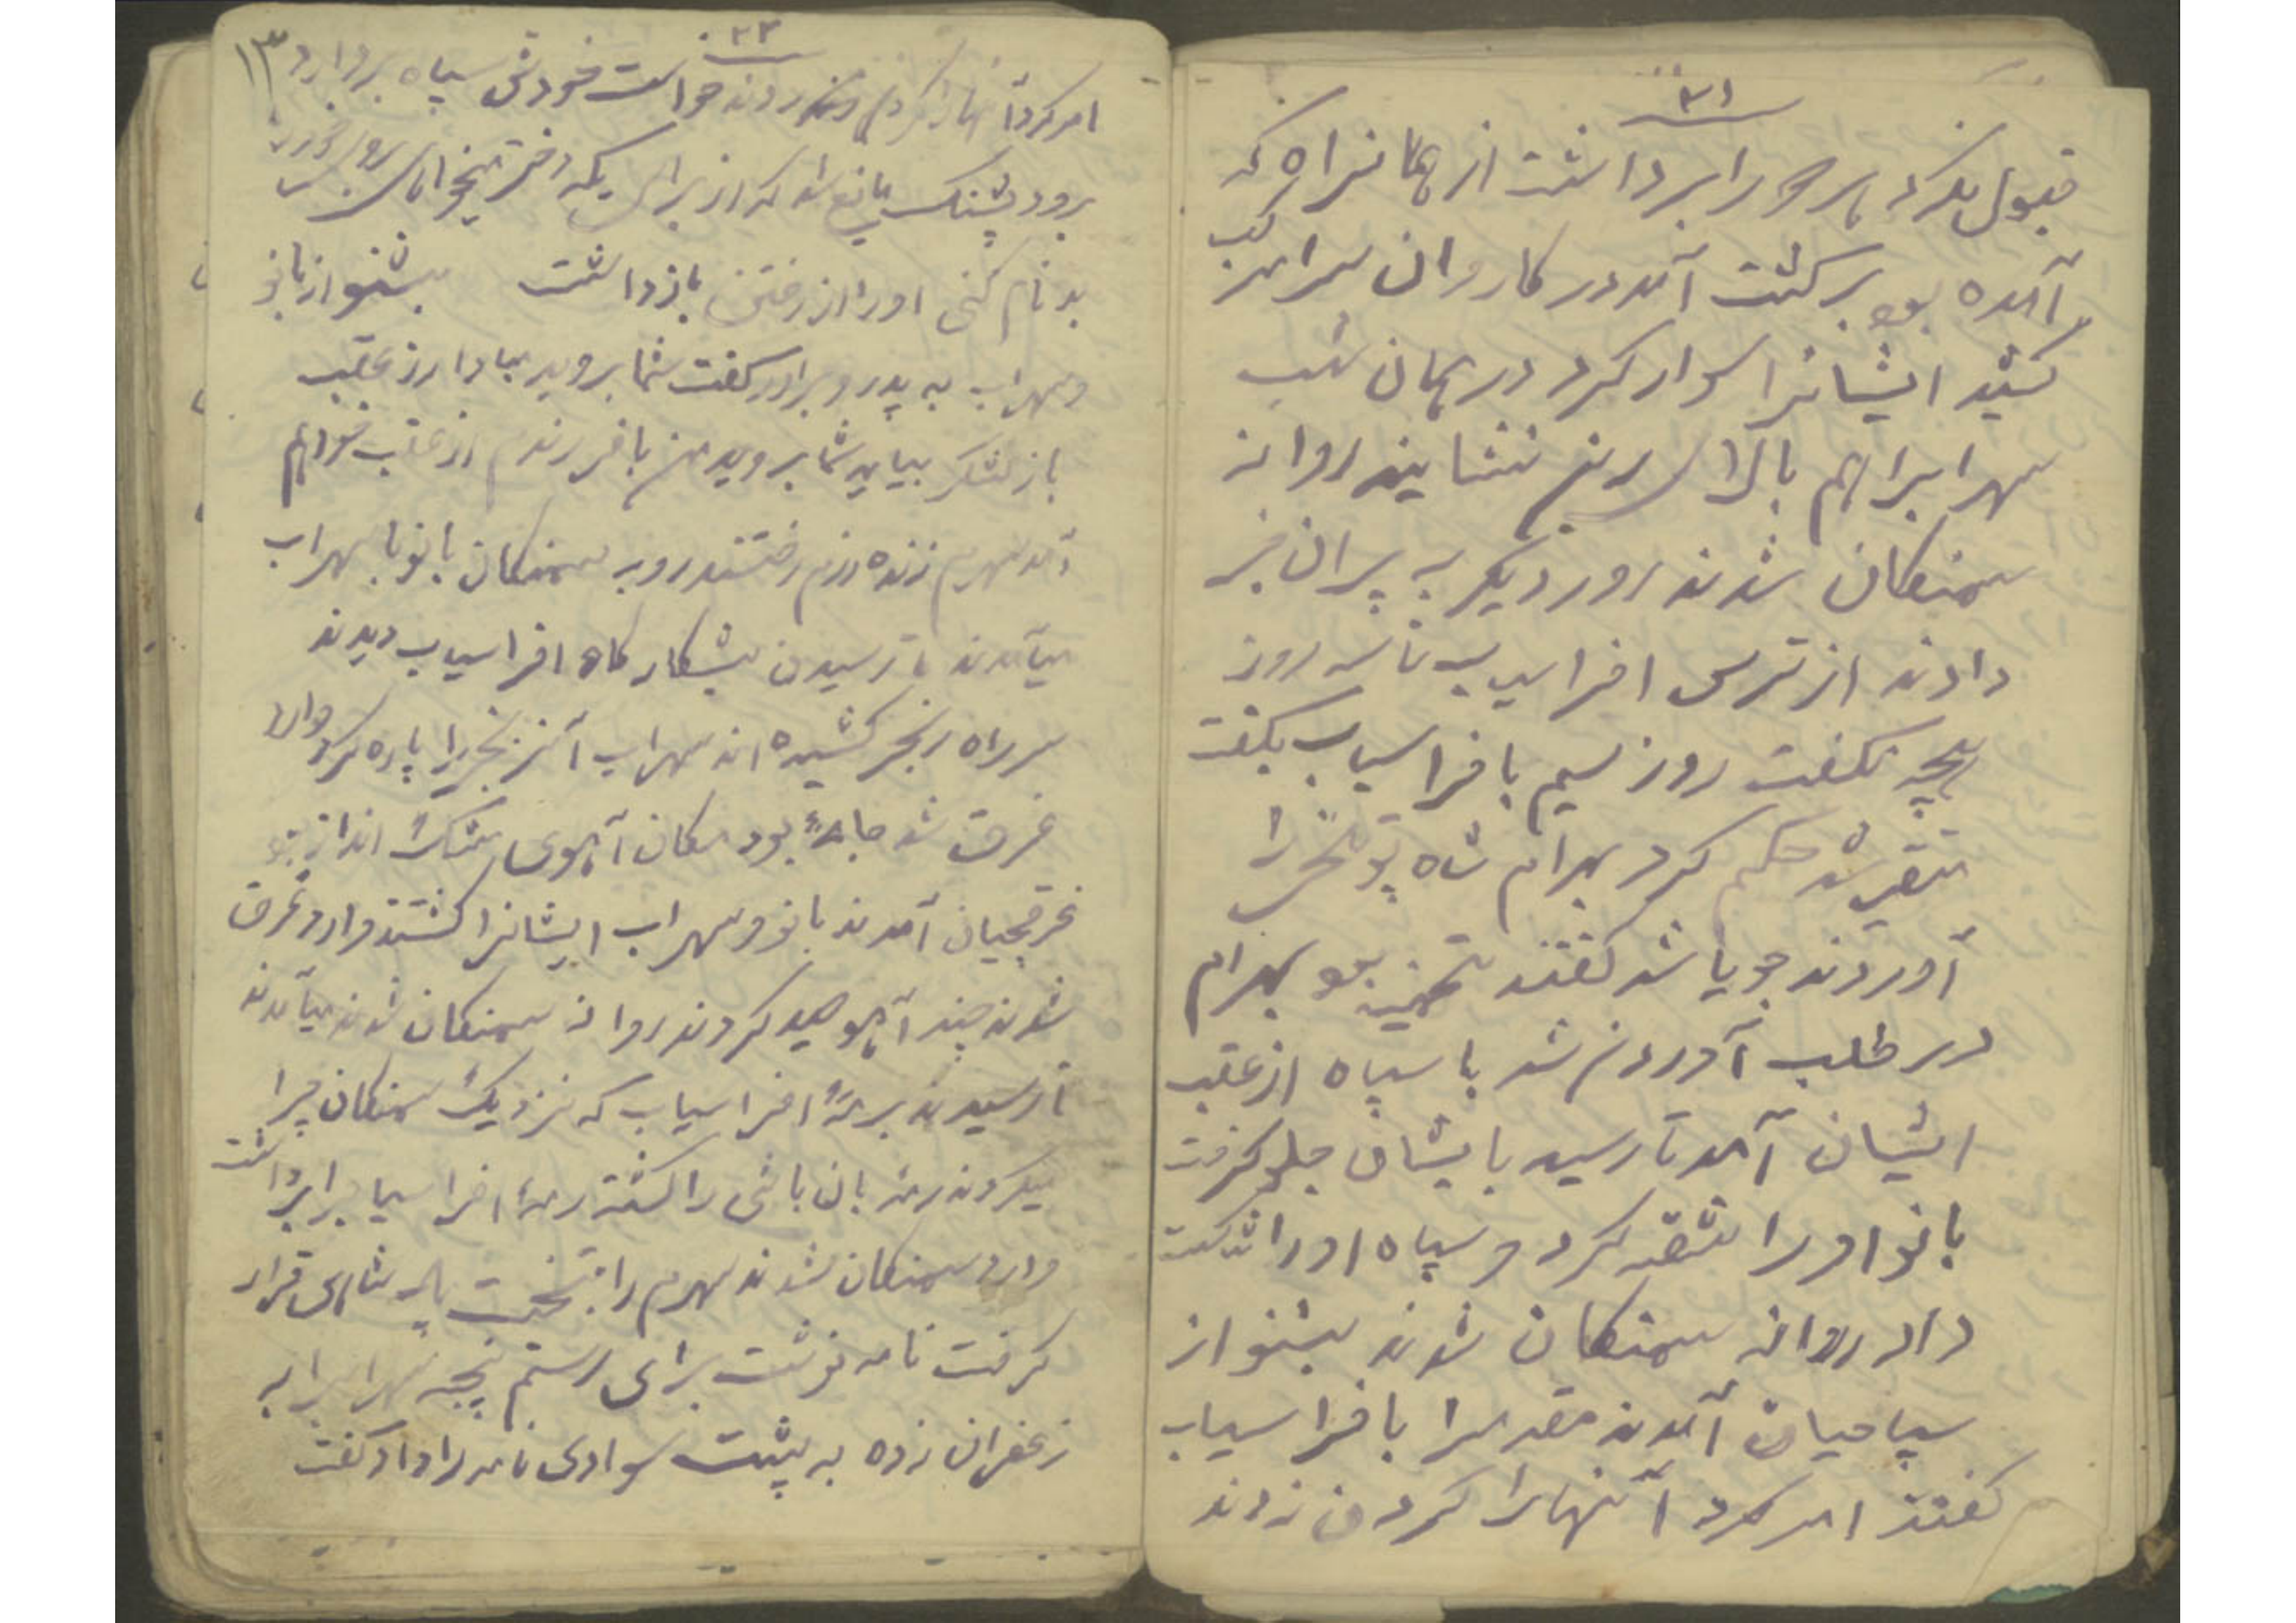 ۳۱
قبول نکرد هر دو را برداشت از همانراه که
آمده بود برگشت آمد در کاروان سرا مرکب
کشید ایشانرا سوار کرد در همان شب
سهرابرا هم بالای زین نشانید روانه
سمنگان شدند روز دیگر به پیران خبر
دادند از ترس افراسیاب تا سه روز
هیچ نگفت روز سیم بافراسیاب بگفت
متغیر شد حکم کرد بهرام شاه
آوردند جویا شد گفتند تهمینه بود بهرام
در طلب آوردن شد با سپاه از عقب
ایشان آمد تا رسید بایشان جلو گرفت
بانو او را شقه کرد و سپاه او را شکست
داد روانه سمنگان شدند بشنو از
سپاهیان آمدند مقدمه را بافراسیاب
گفتند امر کرد آنهارا گردن زدند
۳۲
۱۳
امر کرد آنهارا گردن زدند خواست خودش سپاه بردارد
برود پشنگ مانع شد که از برای یکه دختر میخواهی
بدنام کنی او را از رفتن بازداشت بشنو از بانو
و سهراب به پدر و برادر گفت شما بروید مبادا از عقب
باز لشکر بیاید شما بروید من با فرزندم از عقب خواهم
آمد سهرم زنده رزم رفتند رو به سمنگان بانو با سهراب
میآمدند تا رسیدن بشکارگاه افراسیاب دیدند
سر راه زنجیر کشیده اند سهراب آن زنجیررا پاره کرد وارد
غرق شد بود مکان آهوی مشک انداز بود
غرقچیان آمدند بانو و سهراب ایشانرا کشتند وارد غرق
شدند چند آهو صید کردند روانه سمنگان شدند میآمدند
تا رسیدند برمهٔ افراسیاب که نزدیک سمنگان چرا
میکردند رمه بان باشی را کشته رمهٔ افراسیابرا برداشت
وارد سمنگان شدند سهرم را بتخت پادشاهی قرار
گرفت نامه نوشت برای رستم پنجه سهرابرا به
زعفران زده به پشت سوادی نامه را داد گفت